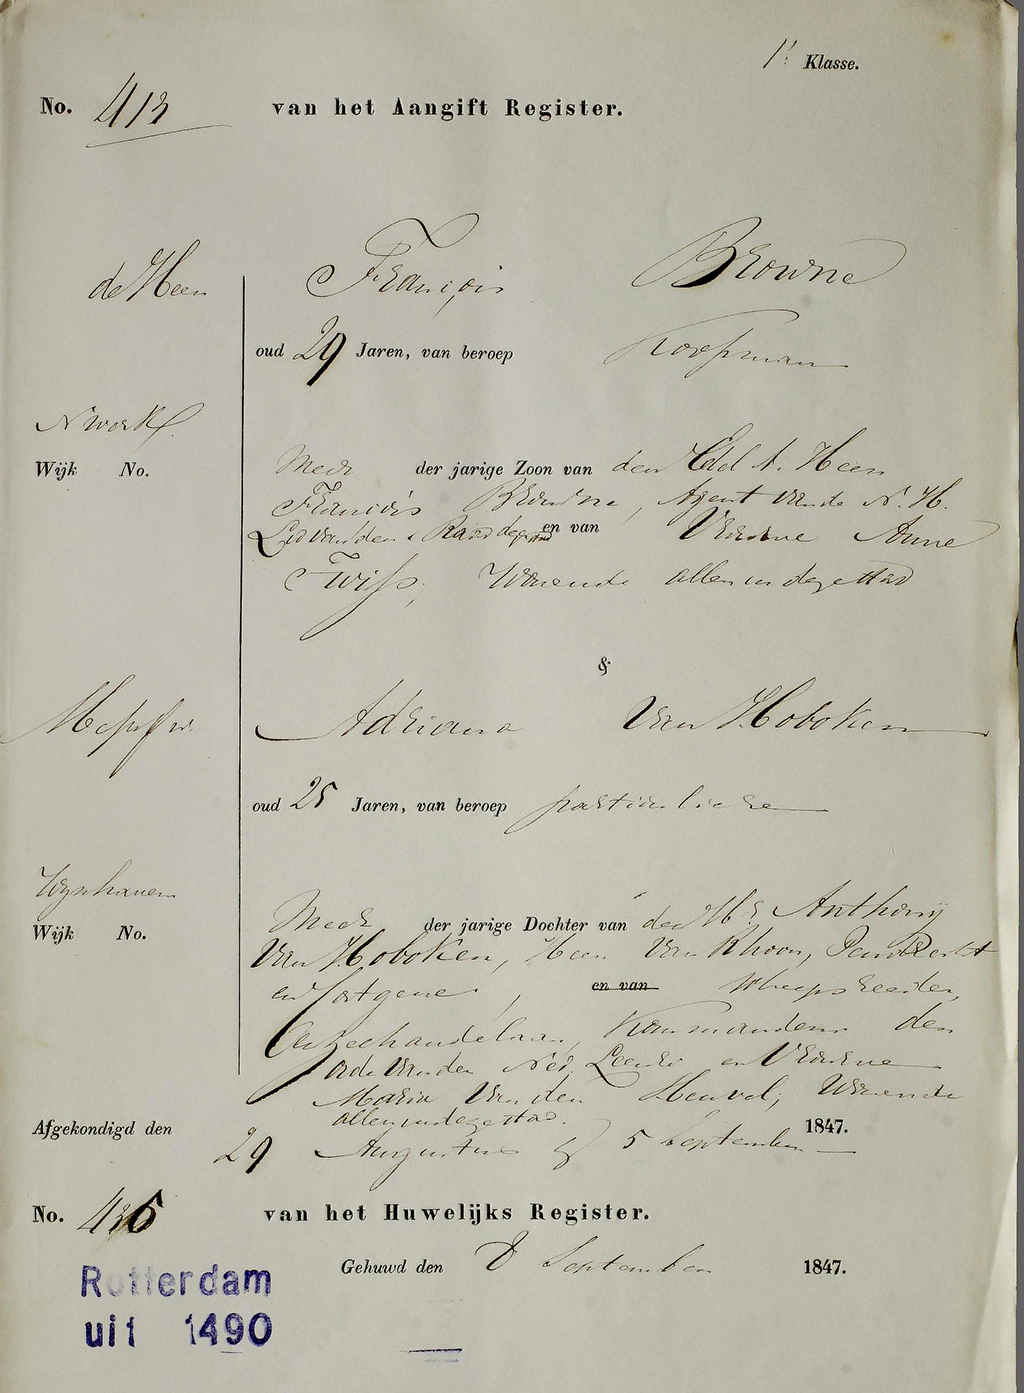 1e Klasse.
No. 413 van het Aangift Register.
de Heer François Browne
oud 29 Jaren, van beroep Koopman
Wijk No. Meer der jarige Zoon van den Heer
François Browne, Agent van de N. H.
Lid van den Raad dezer en van Vrouwe Anne
Twiss, Wonende allen in deze stad
&
Adriana van Hoboken
oud 25 Jaren, van beroep particuliere
Wijnhaven
Wijk No. Meer der jarige Dochter van den Anthony
van Hoboken, Heer van Rhoon, Pendrecht
en Cortgene, en van Scheepsreeder,
Kommandeur der
Orde van den Ned. Leeuw en Vrouwe
Maria van den Heuvel, Wonende
allen in deze stad.
Afgekondigd den 29 Augustus & 5 September 1847.
No. 436 van het Huwelijks Register.
Gehuwd den 8 September 1847.
Rotterdam
uit 1490